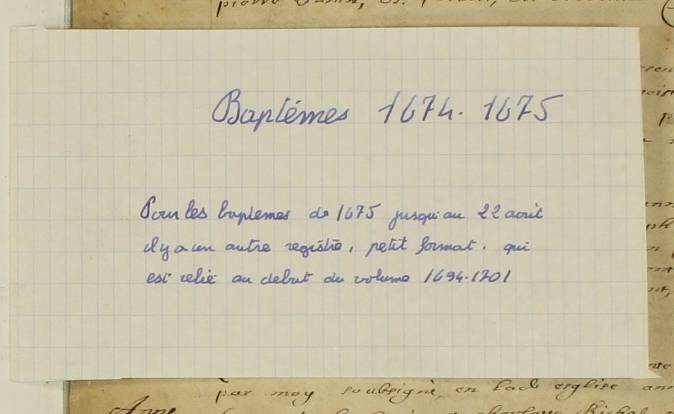 Baptêmes 1674. 1675
Pour les baptemes de 1675 jusqu'au 22 aout
il y a un autre registre, petit format, qui
est relié au debut du volume 1694-1701
par moy soubsigné, en lad esglise
Anne